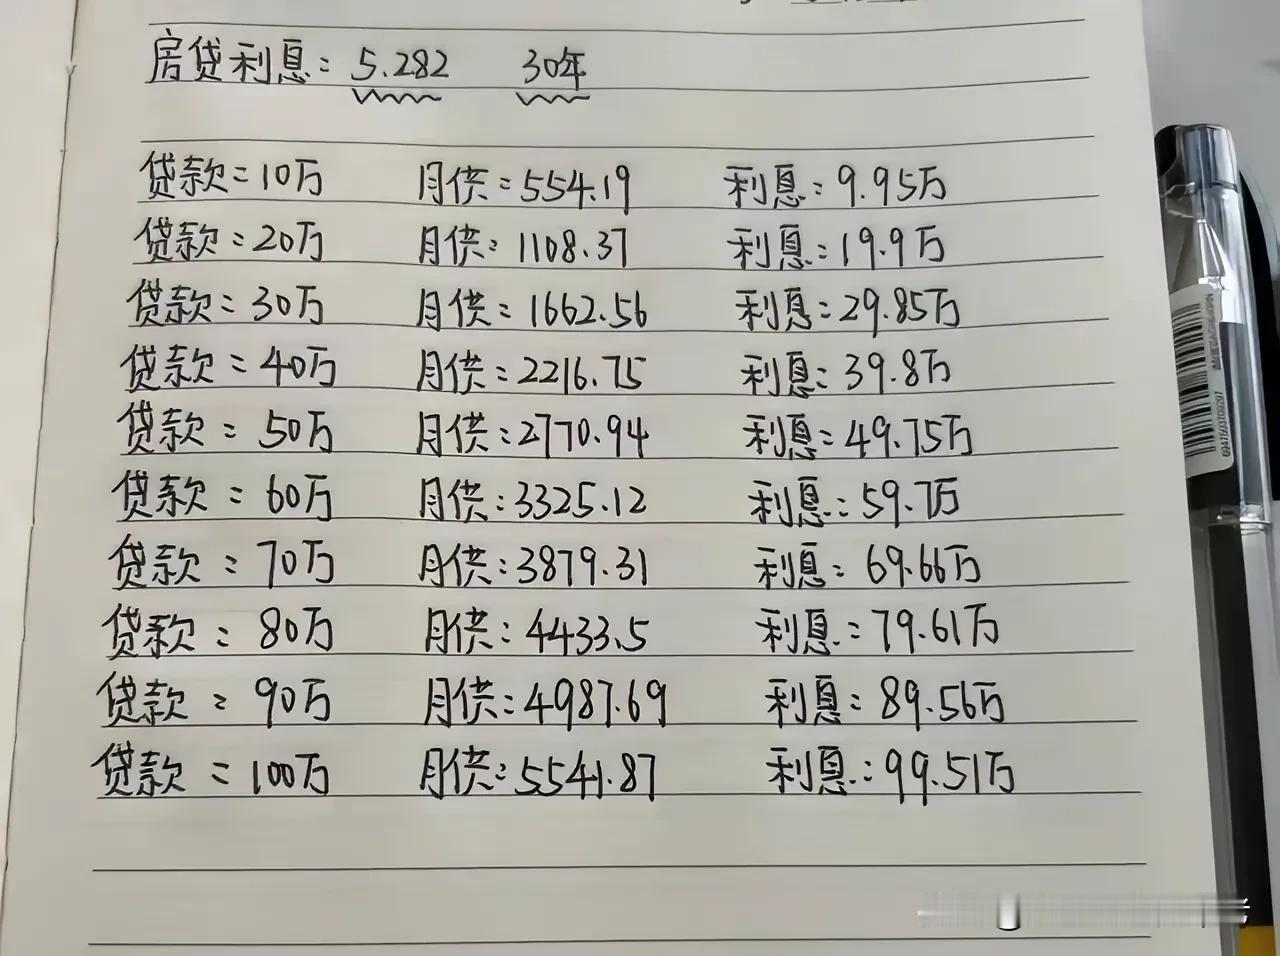 房贷利息：5.282 30年
贷款=10万 月供：554.19 利息：9.95万
贷款：20万 月供：1108.37 利息：19.9万
贷款：30万 月供：1662.56 利息：29.85万
贷款=40万 月供：2216.75 利息：39.8万
贷款：50万 月供：2770.94 利息：49.75万
贷款：60万 月供：3325.12 利息：59.7万
贷款：70万 月供：3879.31 利息：69.66万
贷款：80万 月供：4433.5 利息：79.61万
贷款：90万 月供：4987.69 利息：89.56万
贷款=100万 月供：5541.87 利息：99.51万